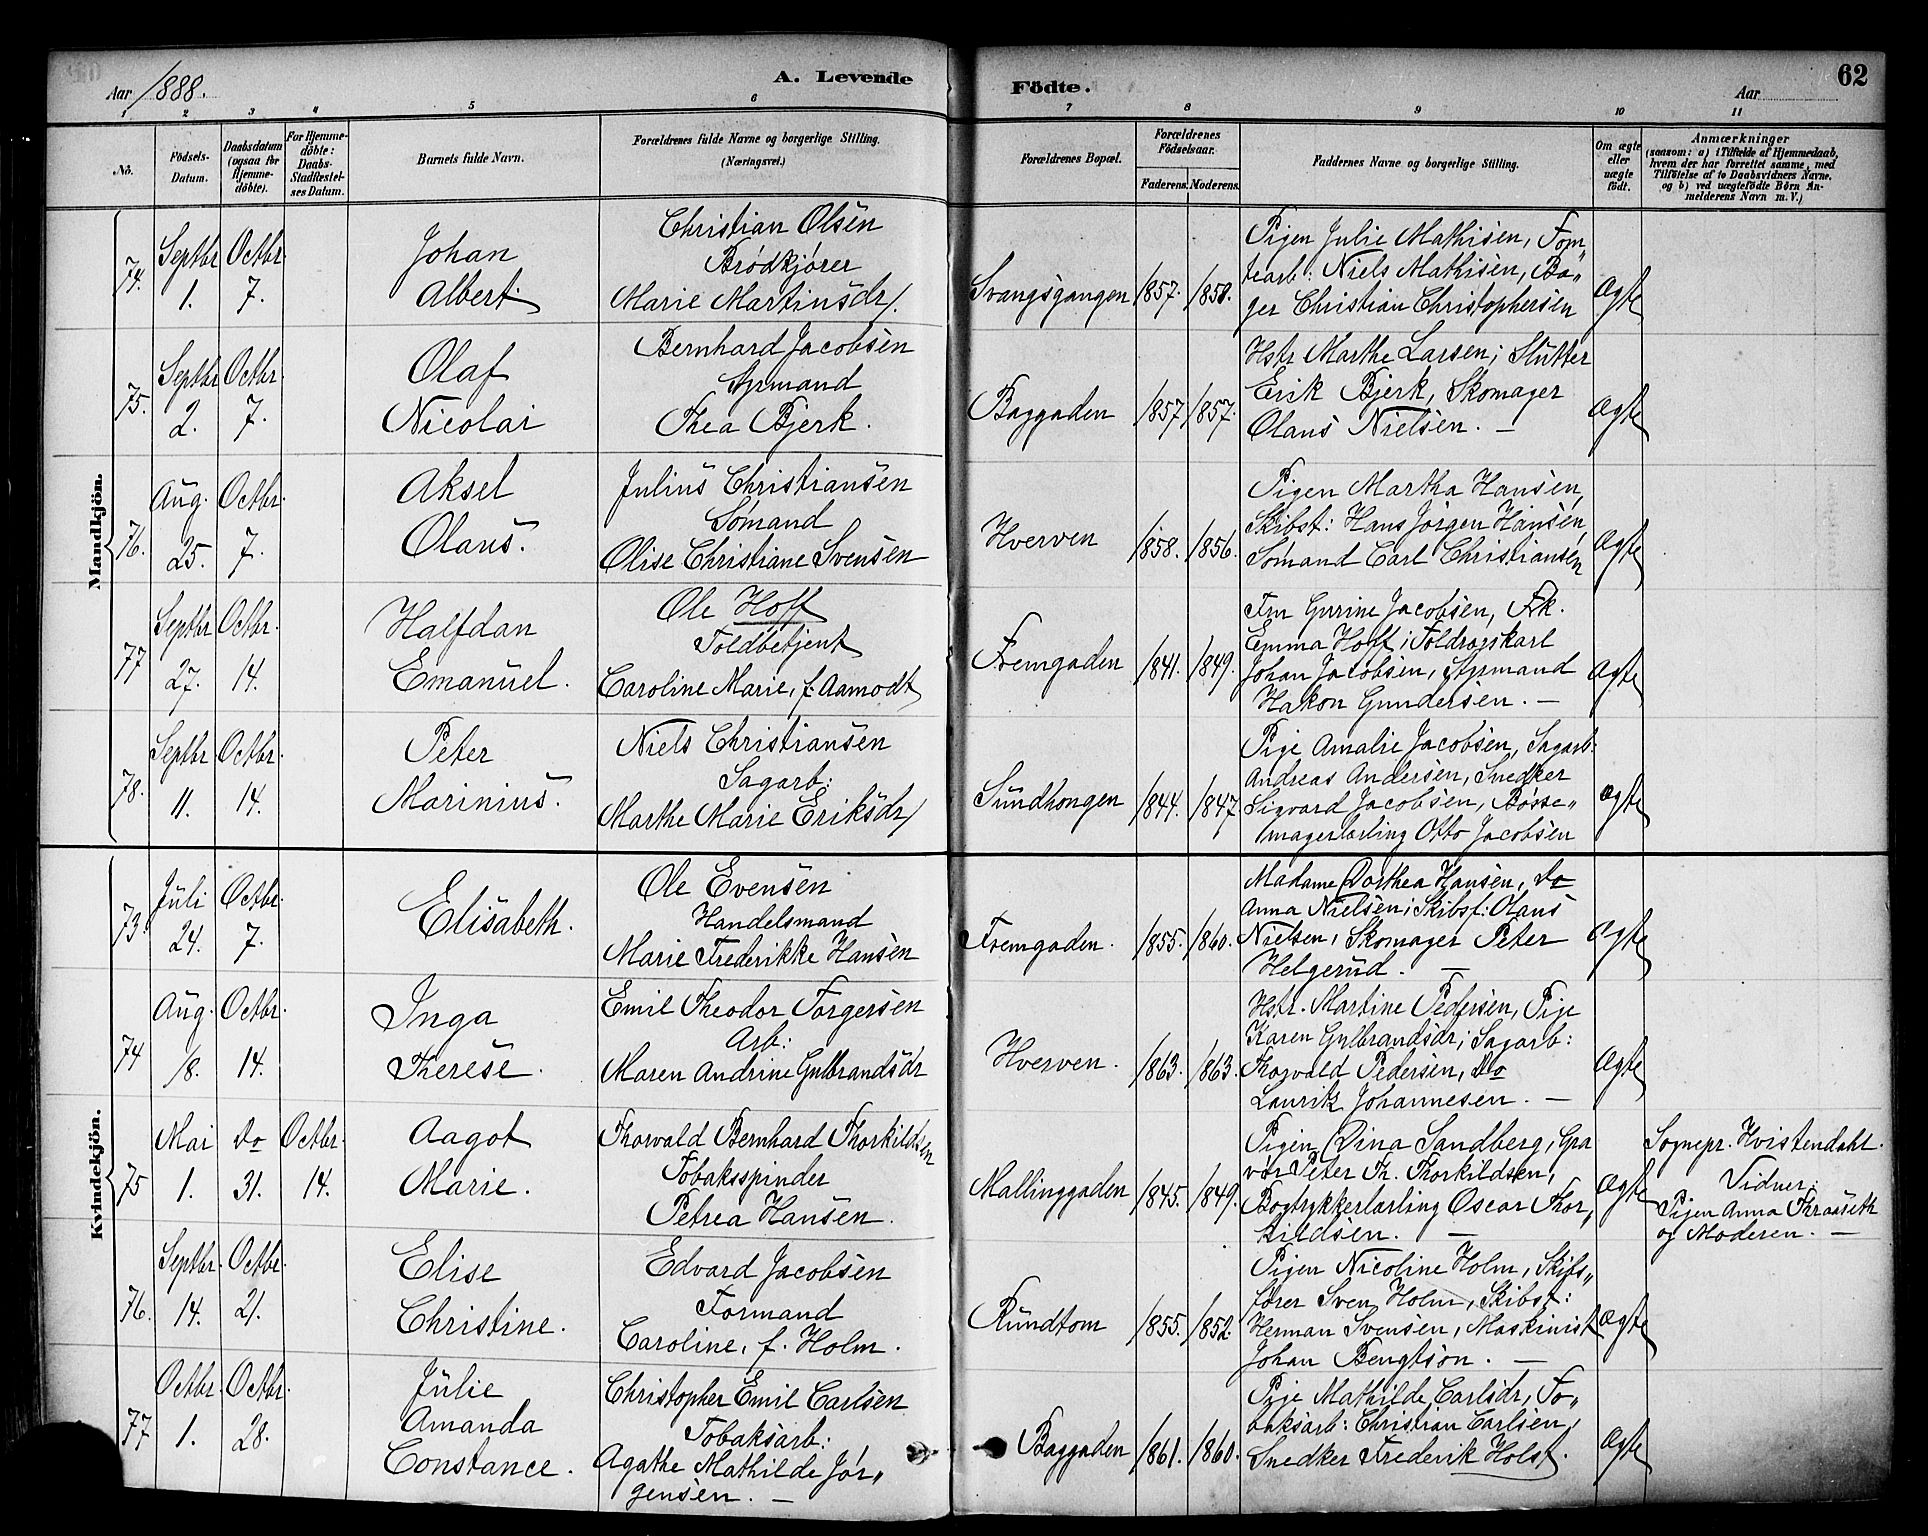 Aar 1888.
A. Levende Födte.
62
Aar
1 2 3 4 5 6 7 8 9 10 11
No.
Födsels-Datum.
Daabsdatum (ogsaa for Hjemmedöbte).
For Hjemmedöbte: Daabs-Stadfæstelses Datum.
Barnets fulde Navn.
Forældrenes fulde Navne og borgerlige Stilling. (Næringsvei.)
Forældrenes Bopæl.
Forældrenes Födselsaar.
Faderens. Moderens.
Faddernes Navne og borgerlige Stilling.
Om ægte eller uægte födt.
Anmærkninger
(saasom: a) i Tilfælde af Hjemmedaab, hvem der har forrettet samme, med Tilföielse af to Daabsvidners Navne. og b) ved uægtefödte Börn Anmelderens Navn m. V.)
Mandkjön.
74. Septbr 1. Octbr. 7.
Johan
Albert
Christian Olsen
Brödkjörer
Marie Martinsdr.
Svangsgangen 1857. 1858.
Pigen Julie Mathisen, Tom„
tearb: Niels Mathisen, Ba„
ger Christian Christophersen
Ægte
75. Septbr 2. Octbr. 7.
Olaf
Nicolai
Bernhard Jacobsen
Styrmand
Thea Bjerk.
Baggaden 1857 1857.
Hstr Marthe Larsen; Slutter
Erik Bjerk, Skomager
Olaus Nielsen. —
Ægte
76. Aug. 25. Octbr. 7.
Aksel
Olaus.
Julius Christiansen
Sömand
Olise Christiane Svensen
Hverven 1858. 1856.
Pigen Martha Hansen,
Skibst: Hans Jörgen Hansen,
Sömand Carl Christiansen
Ægte
77 Septbr 27. Octbr. 14.
Halfdan
Emanuel.
Ole Hoff
Toldbetjent
Caroline Marie, f. Aamodt
Fremgaden 1841. 1849.
Fru Gurine Jacobsen, Frk.
Emma Hoff; Toldropskarl
Johan Jacobsen, Styrmand
Hakon Gundersen. —
Ægte
78. Septbr 11. Octbr. 14.
Peter
Marinius.
Niels Christiansen
Sagarb:
Marthe Marie Eriksdr
Sundhongen 1844. 1847
Pige Amalie Jacobsen, Sagarb.
Andreas Andersen, Snedker
Sigvard Jacobsen, Bösse„
magerlærling Otto Jacobsen
Ægte
Kvindekjön.
73. Juli 24. Octbr. 7.
Elisabeth.
Ole Evensen
Handelsmand
Marie Frederikke Hansen
Fremgaden. 1855. 1860.
Madame Dorthea Hansen, Do
Anna Nielsen; Skibsf: Olaus
Nielsen, Skomager Peter
Helgerud. —
Ægte
74 Aug. 18. Octbr. 14.
Inga
Therese.
Emil Theodor Torgersen
Arb:
Maren Andrine Gulbrandsdr
Hverven. 1863. 1863.
Hstr. Martine Pedersen, Pige
Karen Gulbrandsdr; Sagarb:
Thorvald Pedersen, Do
Laurik Johannesen. —
Ægte
75 Mai 1. Do 31. Octbr. 14.
Aagot
Marie.
Thorvald Bernhard Thorkildsen
Tobaksspinder
Petrea Hansen.
Mallinggaden 1845. 1849.
Pigen Dina Sandberg, Gra
vör Peter Th. Thorkildsen,
Bogtrykkerlærling Oscar Thor„
kildsen. —
Ægte
Sognepr. Hvistendahl.
Vidner:
Pigen Anna Thraaseth
og Moderen. —
76. Septbr. 14. Octbr. 21.
Elise
Christine.
Edvard Jacobsen
Formand
Caroline, f. Holm.
Rundtom 1855. 1852.
Pigen Nicoline Holm, Skibs„
förer Sven Holm, Skibst:
Herman Svensen, Maskinist
Johan Bengtson. —
Ægte
77 Octbr. 1. Octbr. 28.
Julie
Amanda
Constance.
Christopher Emil Carlsen
Tobaksarb:
Agathe Mathilde Jör„
gensen. —
Baggaden 1861. 1860.
Pige Mathilde Carlsdr, To„
baksarb: Christian Carlsen,
Snedker Frederik Holst.
Ægte